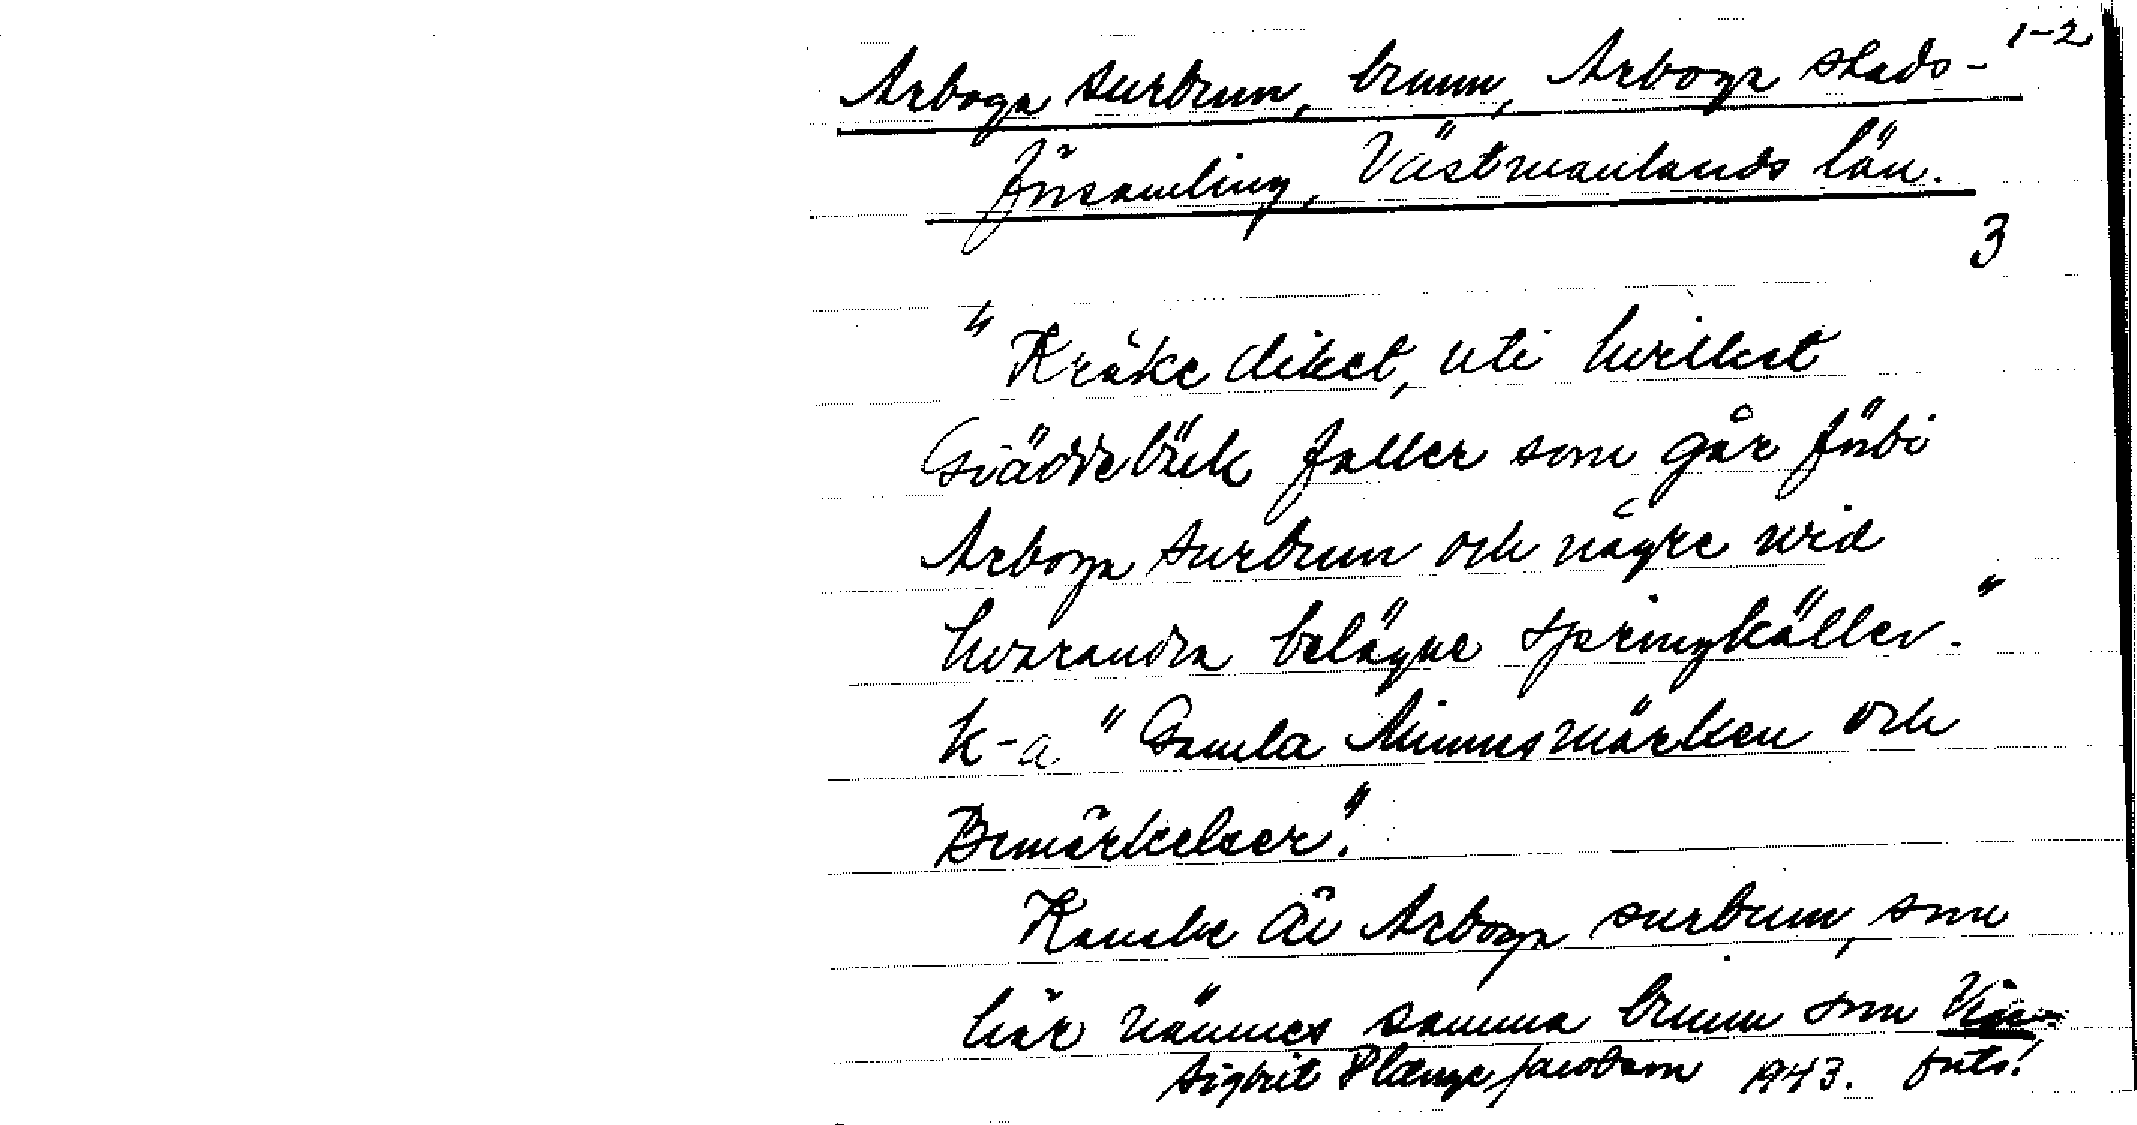 1-2
Arboga surbrun, brunn, Arboga stads-
församling, Västmanlands län.
3
"Kråke diket, uti hvilket
Gäddebäck faller som går förbi
Arboga surbrun och någre wid
hvarandra belägne springkällor."
k-a "Gamla Minnesmärken och
Bemärkelser".
Kanske är Arboga surbrun, som
här nämnes samma brunn som
Sigbrit Plænge Jacobson 1943. forts!